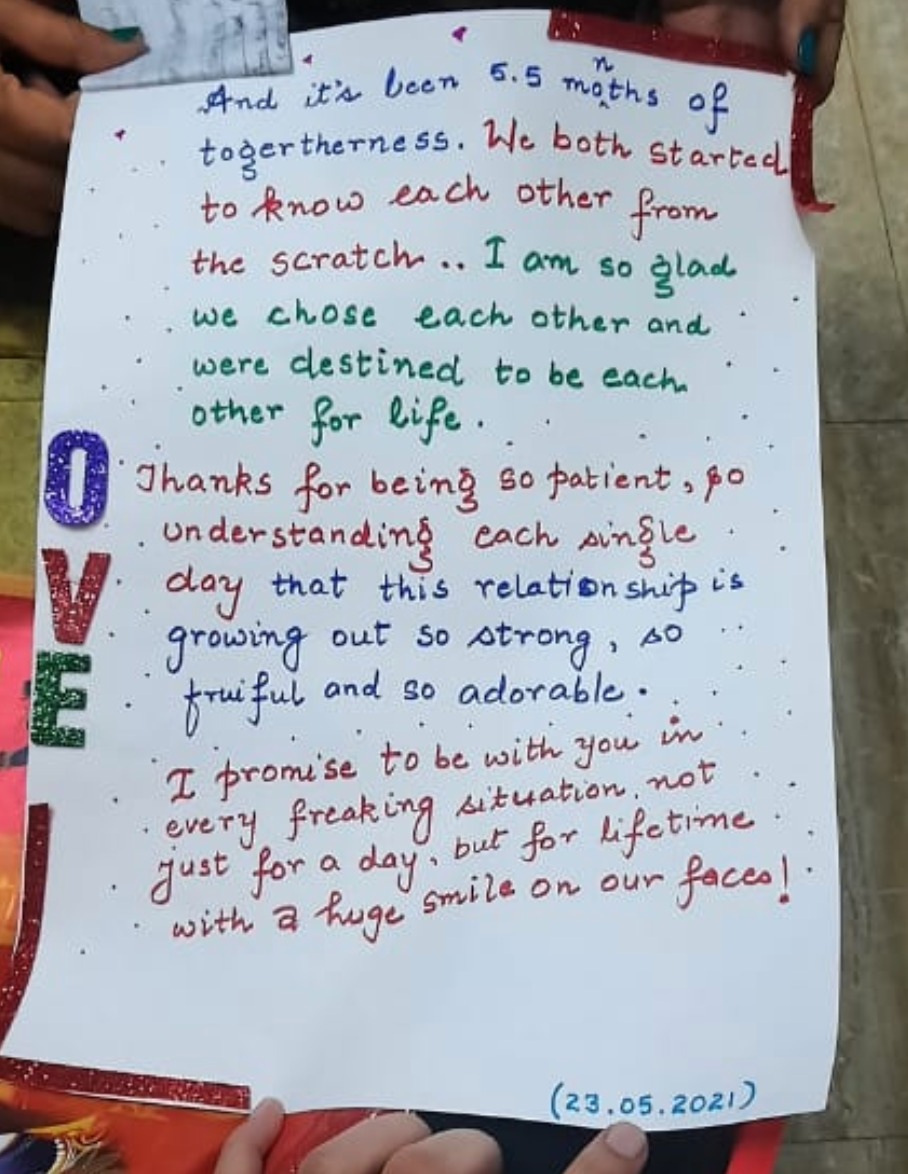 And it's been 6.5 months of
togertherness. We both started
to know each other from
the scratch.. I am so glad
we chose each other and
were destined to be each
other for life.
Thanks for being so patient, so
understanding each single
day that this relationship is
growing out so strong, so
fruiful and so adorable.
I promise to be with you in
every freaking situation, not
just for a day, but for lifetime
with a huge smile on our faces!
(23.05.2021)
O
V
E